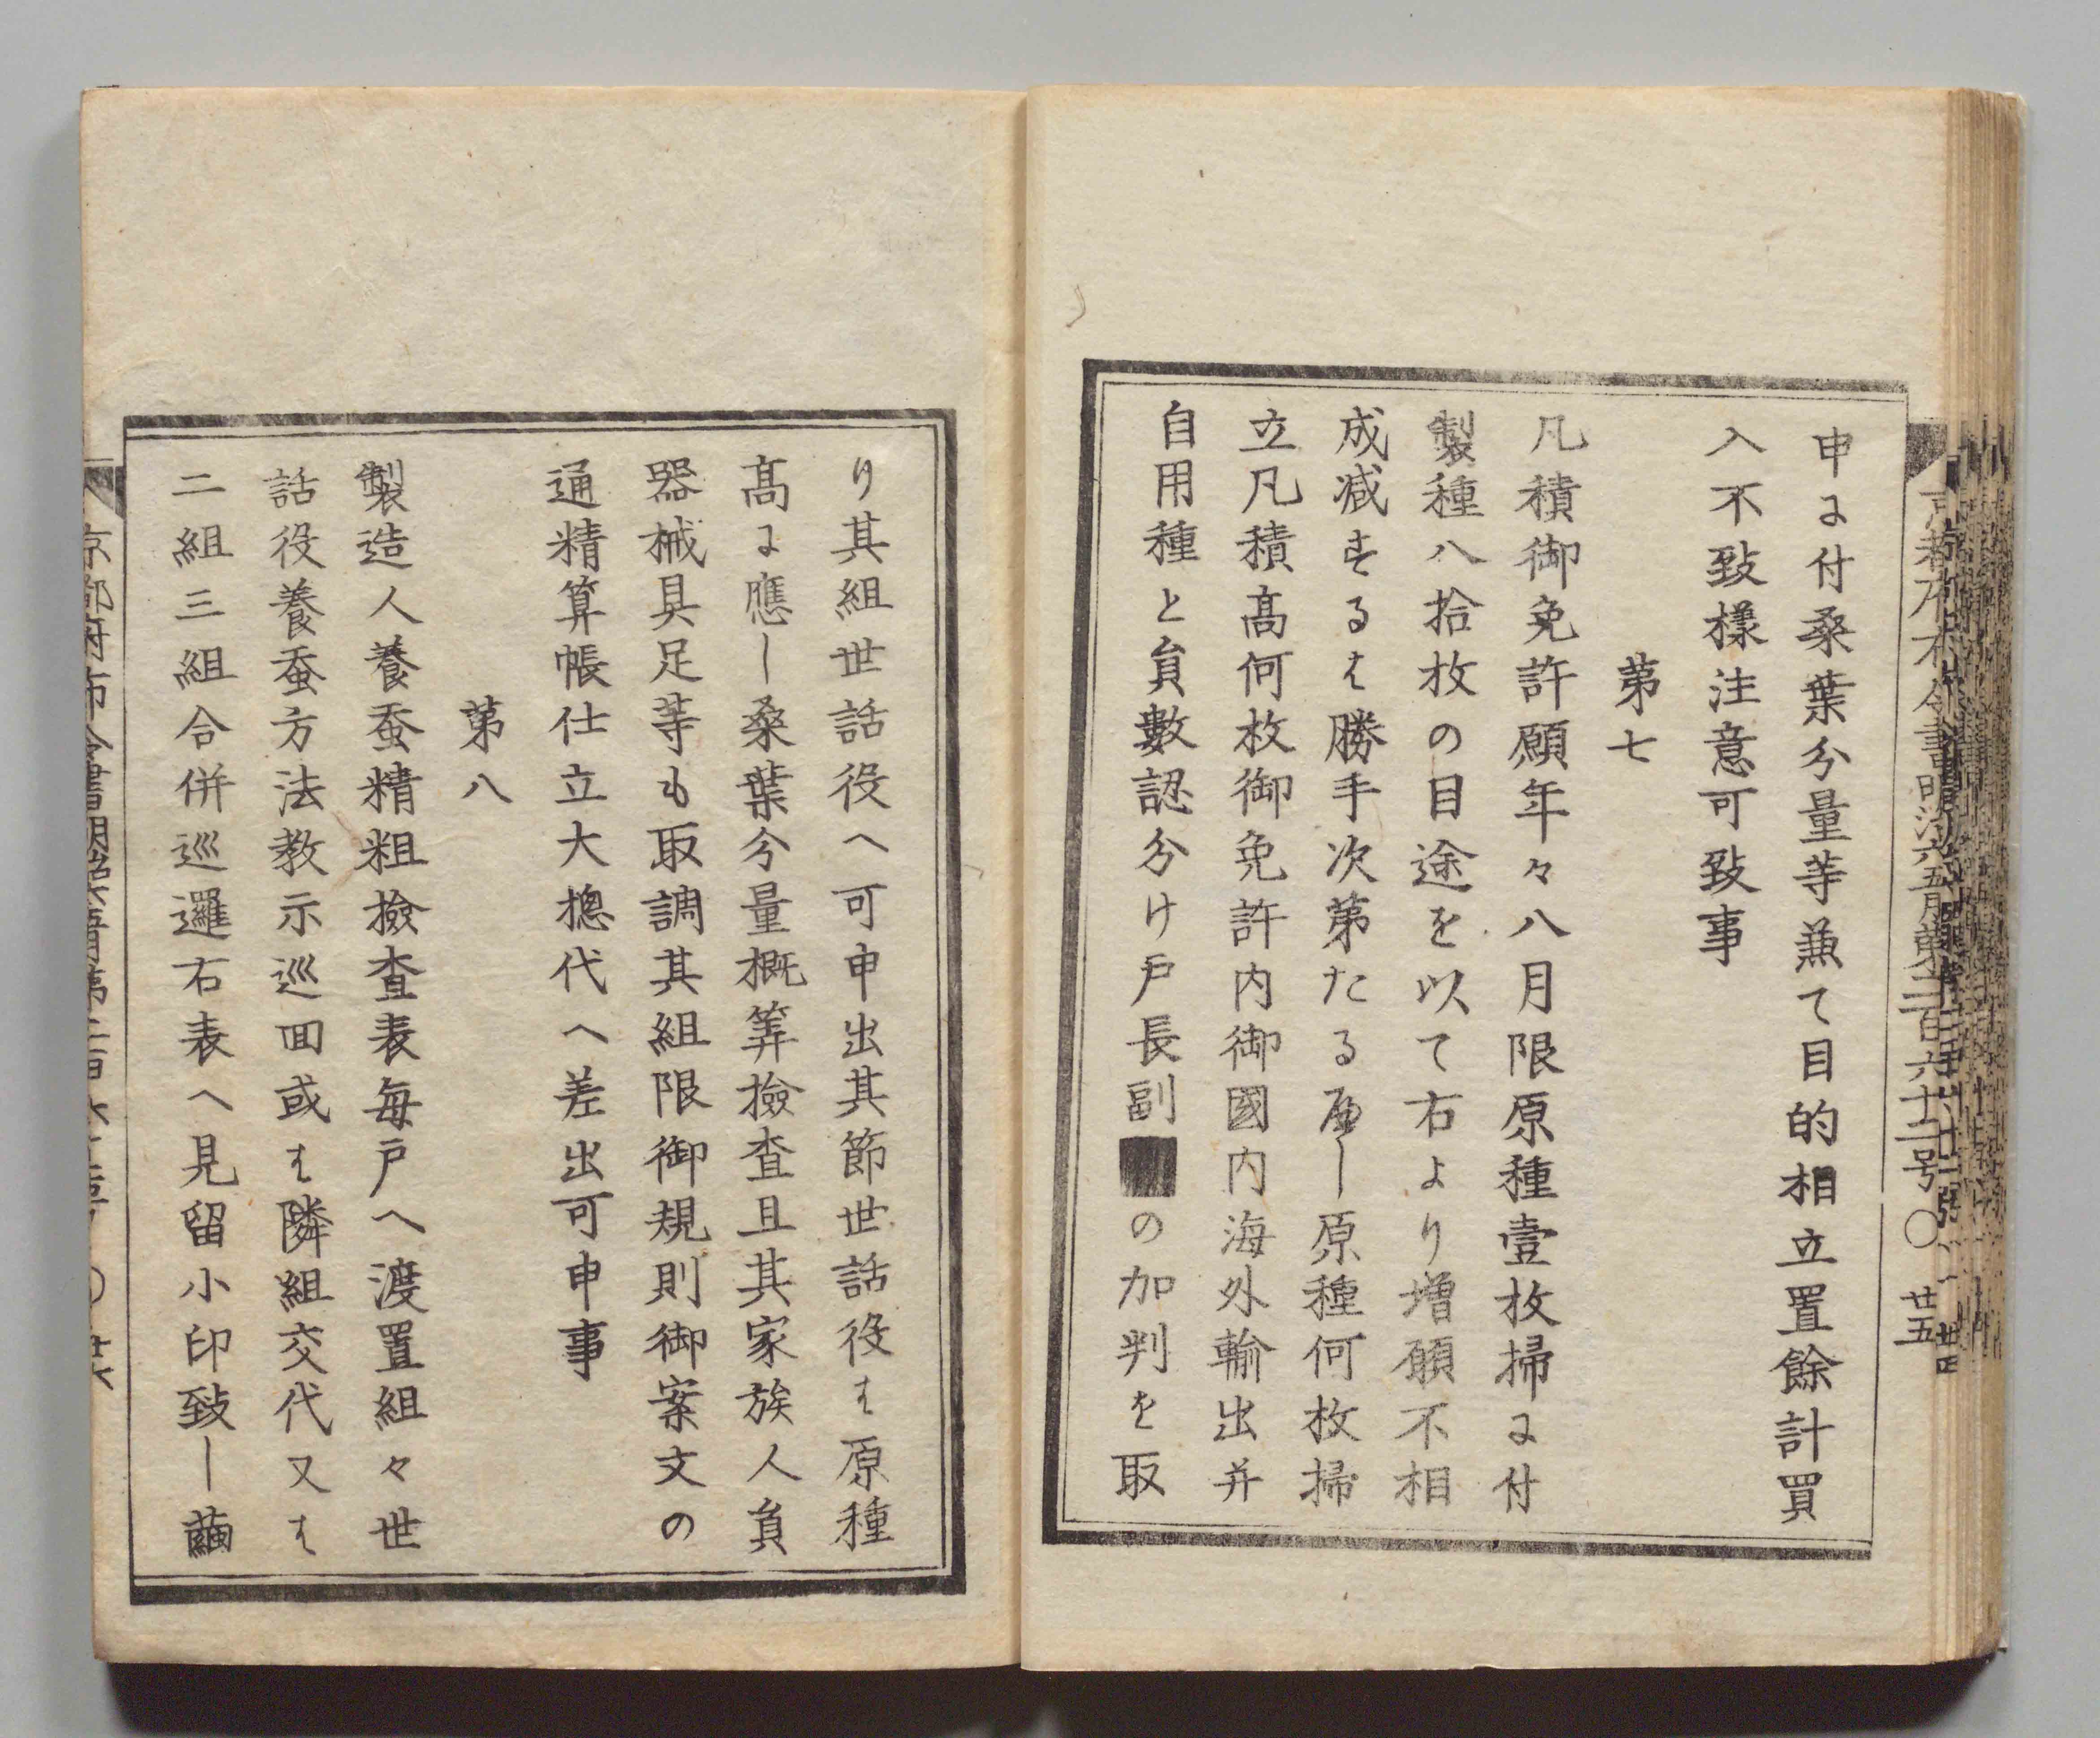 申に付桑葉分量等兼て目的相立置餘計買
入不致樣注意可致事
第七
凡積御免許願年々八月限原種壹枚掃に付
製種八拾枚の目途を以て右より増願不相
成减するは勝手次第たるへし原種何枚掃
立凡積髙何枚御免許内御國内海外輸出并
自用種と員數認分け戸長副■の加判を取
京都府布令書明治六五月第二百六十二号〇 廿五
り其組世話役へ可申出其節世話役は原種
髙に應し桑葉分量概筭撿査且其家族人員
器械具足等も取調其組限御規則御案文の
通精算帳仕立大摠代へ差出可申事
第八
製造人養蚕精粗撿査表毎戸へ渡置組々世
話役養蚕方法教示巡回或は隣組交代又は
二組三組合併巡邏右表へ見留小印致し繭